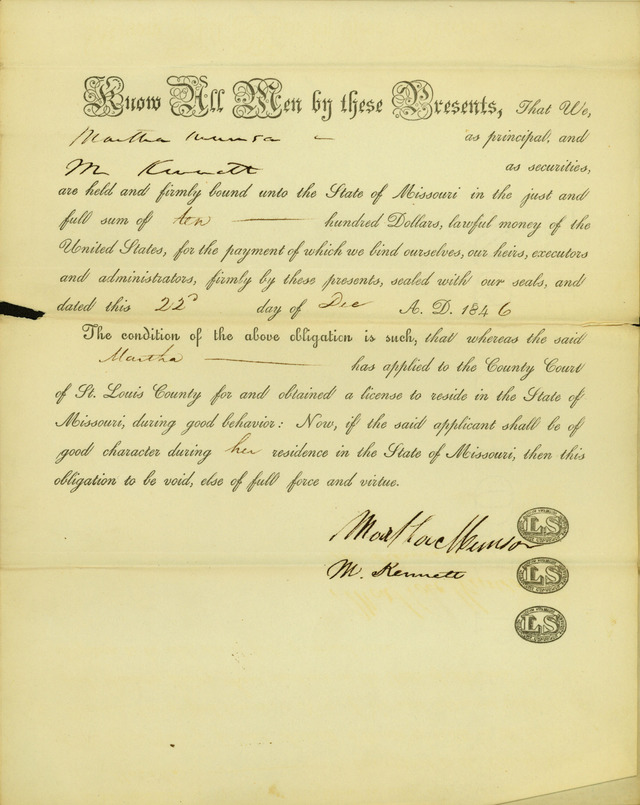 Know All Men by these Presents, That We,
Martha Munson as principal, and
M Kennett as securities,
are held and firmly bound unto the State of Missouri in the just and
full sum of ten hundred Dollars, lawful money of the
United States, for the payment of which we bind ourselves, our heirs, executors
and administrators, firmly by these presents, sealed with our seals, and
dated this 22d day of Dec A. D. 1846
The condition of the above obligation is such, that whereas the said
Martha has applied to the County Court
of St. Louis County for and obtained a license to reside in the State of
Missouri, during good behavior: Now, if the said applicant shall be of
good character during her residence in the State of Missouri, then this
obligation to be void, else of full force and virtue.
Martha Munson LS
M. Kennett LS
LS